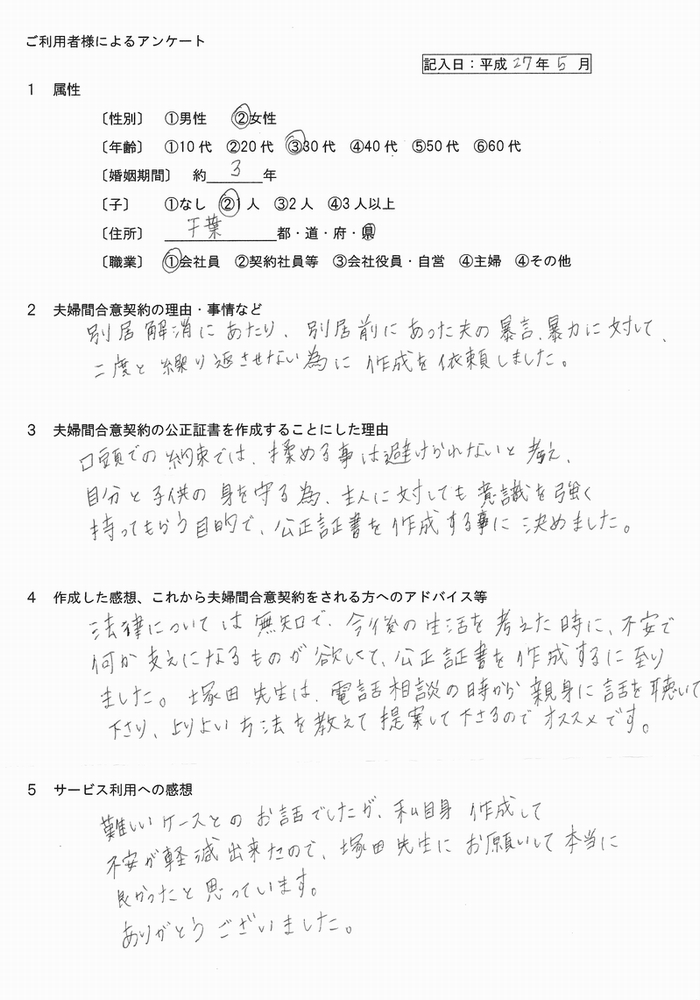 ご利用者様によるアンケート
記入日：平成 27年 5 月
1 属性
〔性別〕 ①男性 ②女性
〔年齢〕 ①10代 ②20代 ③30代 ④40代 ⑤50代 ⑥60代
〔婚姻期間〕 約 3 年
〔子〕 ①なし ②1人 ③2人 ④3人以上
〔住所〕 千葉 都・道・府・県
〔職業〕 ①会社員 ②契約社員等 ③会社役員・自営 ④主婦 ④その他
2 夫婦間合意契約の理由・事情など
別居解消にあたり、別居前にあった夫の暴言、暴力に対して、
二度と繰り返させない為に作成を依頼しました。
3 夫婦間合意契約の公正証書を作成することにした理由
口頭での約束では、揉める事は避けられないと考え、
自分と子供の身を守る為、主人に対しても意識を強く
持ってもらう目的で、公正証書を作成する事に決めました。
4 作成した感想、これから夫婦間合意契約をされる方へのアドバイス等
法律については無知で、今後の生活を考えた時に、不安で
何か支えになるものが欲しくて、公正証書を作成するに至り
ました。塚田先生は、電話相談の時から親身に話を聴いて
下さり、よりよい方法を教えて提案して下さるのでオススメです。
5 サービス利用への感想
難しいケースとのお話でしたが、私自身作成して
不安が軽減出来たので、塚田先生にお願いして本当に
良かったと思っています。
ありがとうございました。